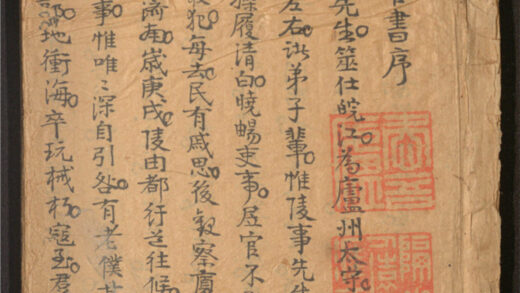 書序
先生筮仕皖江為廬州太守
左右諸弟子輩惟陵事先生
操履清白曉暢吏事居官不
犯每去民有戚思後察
濟南歲庚戌陵由都行往候
事惟唯〻深自引咎有老僕
地衝海卒玩械朽寇至君